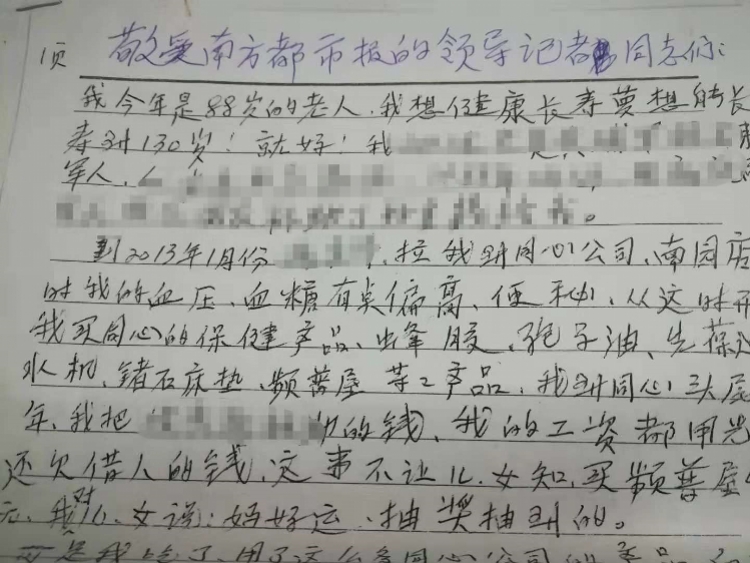 1页 敬爱南方都市报的领导记者同志们:
我今年是88岁的老人,我想健康长寿梦想能长
寿到130岁!就好!我
军人,
。
到2013年1月份 ,拉我到同心公司,南园店
时我的血压、血糖有点偏高、便秘,从这时开
我买同心的保健产品、虫蜂胶、孢子油、
水机、锗石床垫、频普屋等之产品,我到同心头尾
年,我把 的钱,我的工资都用光
还欠借人的钱,这事不让儿、女知,买频普屋
元,我对儿、女说:妈好运、抽奖抽到的。
可是我吃了、用了这么多同心公司的产品